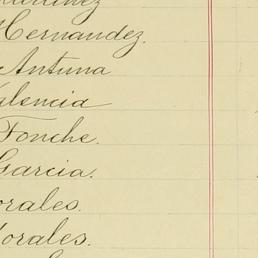 Martinez
Hernandez.
Antuna
Valencia
Fonche.
Garcia.
Morales.
Morales.